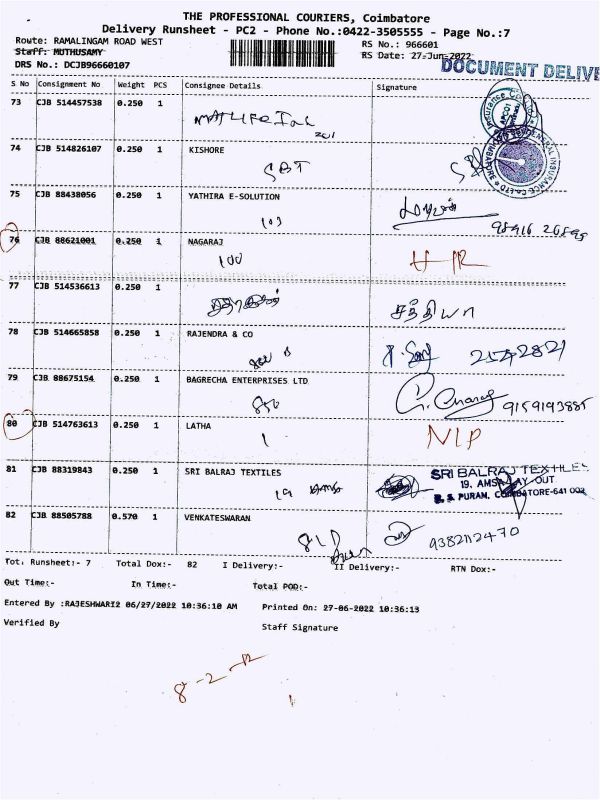 THE PROFESSIONAL COURIERS, Coimbatore
Delivery Runsheet - PC2 - Phone No.:0422-3505555 - Page No.:7
Route: RAMALINGAM ROAD WEST RS No.: 966601
Staff: MUTHUSAMY RS Date: 27-Jun-2022
DRS No.: DCJB96660107 DOCUMENT DELIVE
S No Consignment No Weight PCS Consignee Details Signature
73 CJB 514457538 0.250 1
201
74 CJB 514826107 0.250 1 KISHORE
SBT
75 CJB 88438056 0.250 1 YATHIRA E-SOLUTION
103
76 CJB 88621001 0.250 1 NAGARAJ
100
77 CJB 514536613 0.250 1
சத்தியா
78 CJB 514665858 0.250 1 RAJENDRA & CO
2542821
79 CJB 88675154 0.250 1 BAGRECHA ENTERPRISES LTD
9159193885
80 CJB 514763613 0.250 1 LATHA
1 NIP
81 CJB 88319843 0.250 1 SRI BALRAJ TEXTILES
SRI BALRAJ TEXTILES
19
R. S. PURAM, COIMBATORE-641 002
82 CJB 88505788 0.570 1 VENKATESWARAN
9382112470
Tot. Runsheet:- 7 Total Dox:- 82 I Delivery:- II Delivery:- RTN Dox:-
Out Time:- In Time:- Total POD:-
Entered By :RAJESHWARI2 06/27/2022 10:36:10 AM Printed On: 27-06-2022 10:36:13
Verified By Staff Signature